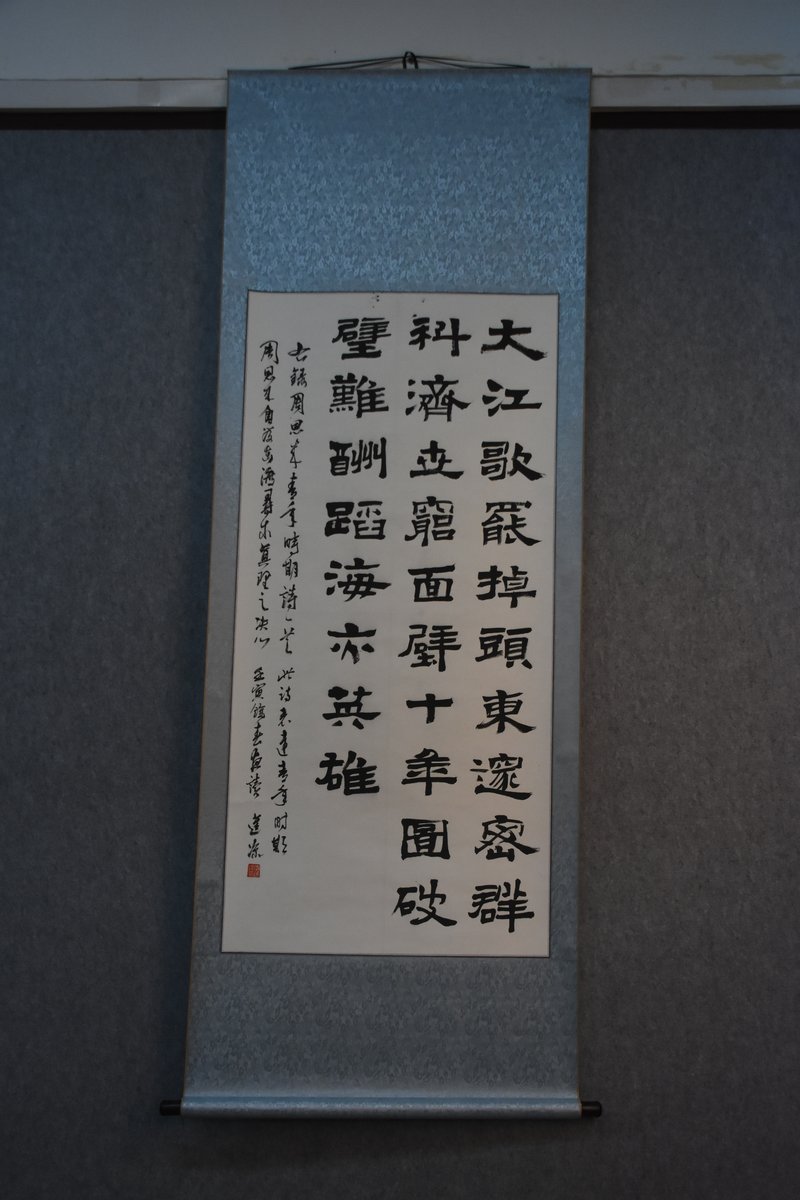 大江歌罷掉頭東邃密群
科濟世窮面壁十年圖破
壁難酬蹈海亦英雄
右錄周恩來青年時期詩一首 此詩表達青年时期
周恩來自强出海尋求真理之决心 壬寅